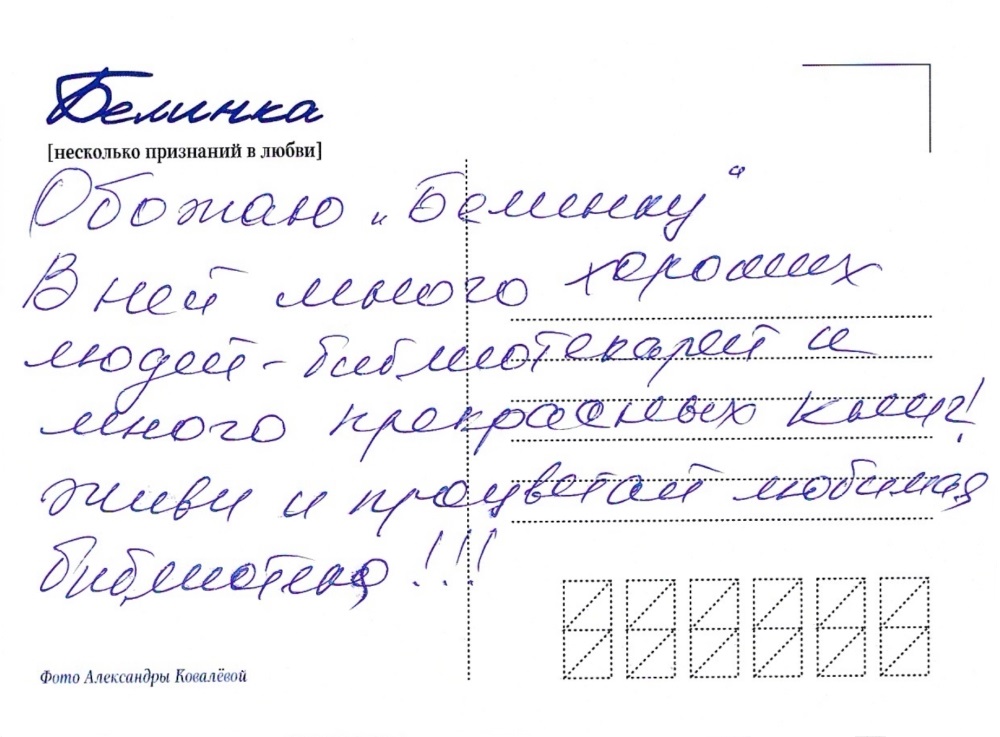 Белинка
[несколько признаний в любви]
Обожаю „Белинку“
В ней много хороших
людей - библиотекарей и
много прекрасных книг!
живи и процветай любимая
библиотека!!!
Фото Александры Ковалёвой